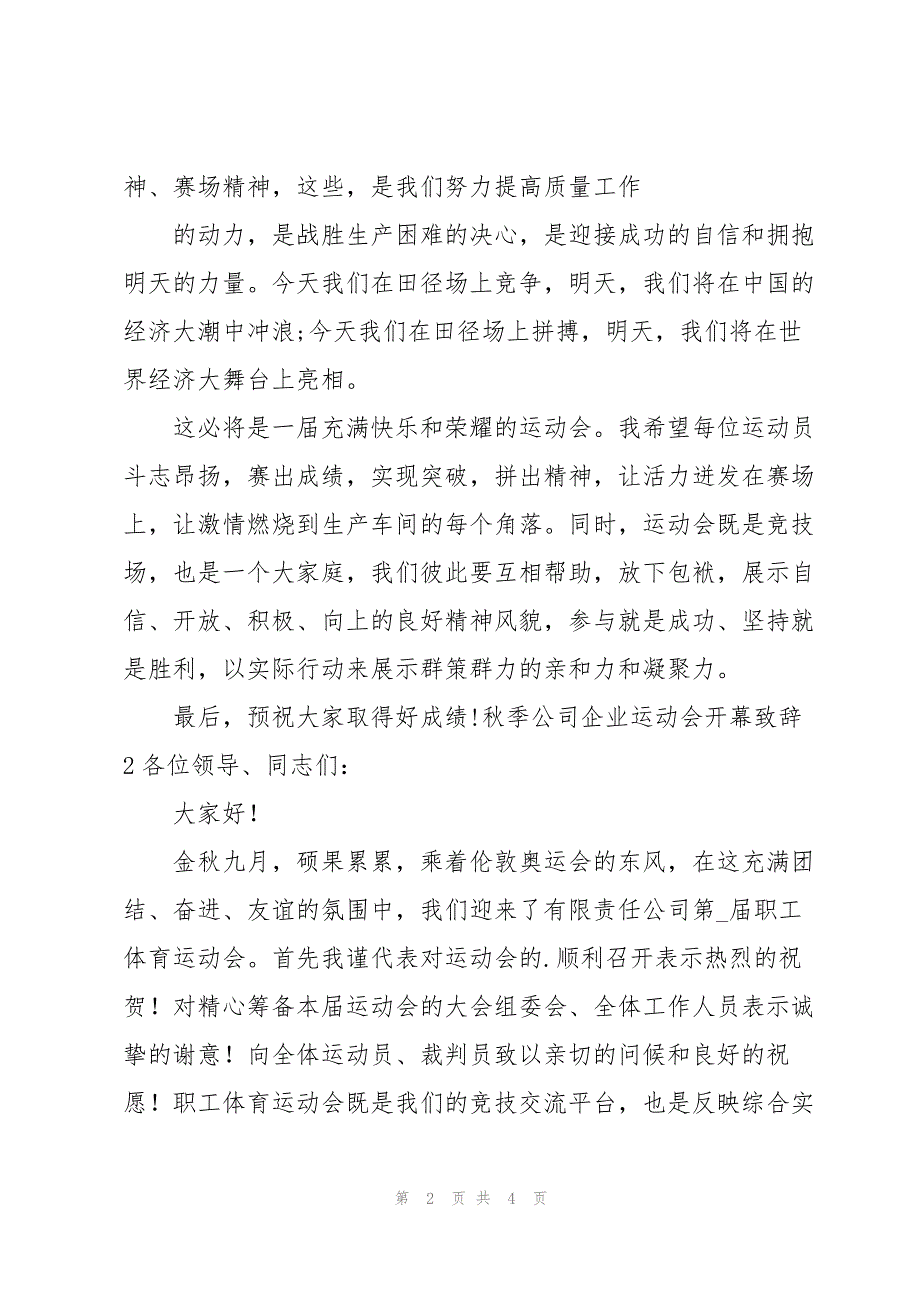 神、赛场精神，这些，是我们努力提高质量工作
的动力，是战胜生产困难的决心，是迎接成功的自信和拥抱
明天的力量。今天我们在田径场上竞争，明天，我们将在中国的
经济大潮中冲浪;今天我们在田径场上拼搏，明天，我们将在世
界经济大舞台上亮相。
这必将是一届充满快乐和荣耀的运动会。我希望每位运动员
斗志昂扬，赛出成绩，实现突破，拼出精神，让活力迸发在赛场
上，让激情燃烧到生产车间的每个角落。同时，运动会既是竞技
场，也是一个大家庭，我们彼此要互相帮助，放下包袱，展示自
信、开放、积极、向上的良好精神风貌，参与就是成功、坚持就
是胜利，以实际行动来展示群策群力的亲和力和凝聚力。
最后，预祝大家取得好成绩!秋季公司企业运动会开幕致辞
2 各位领导、同志们：
大家好！
金秋九月，硕果累累，乘着伦敦奥运会的东风，在这充满团
结、奋进、友谊的氛围中，我们迎来了有限责任公司第_届职工
体育运动会。首先我谨代表对运动会的.顺利召开表示热烈的祝
贺！对精心筹备本届运动会的大会组委会、全体工作人员表示诚
挚的谢意！向全体运动员、裁判员致以亲切的问候和良好的祝
愿！职工体育运动会既是我们的竞技交流平台，也是反映综合实
第 2 页 共 4 页